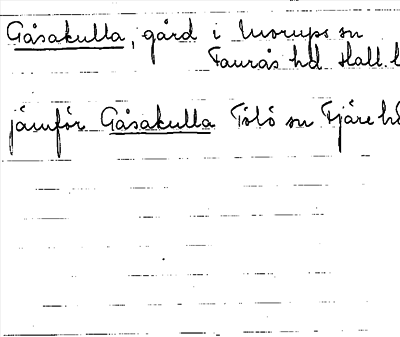 Gåsakulla, gård i Morups sn
Faurås hd Hall. l
jämför Gåsakulla Tölö sn Fjäre hd